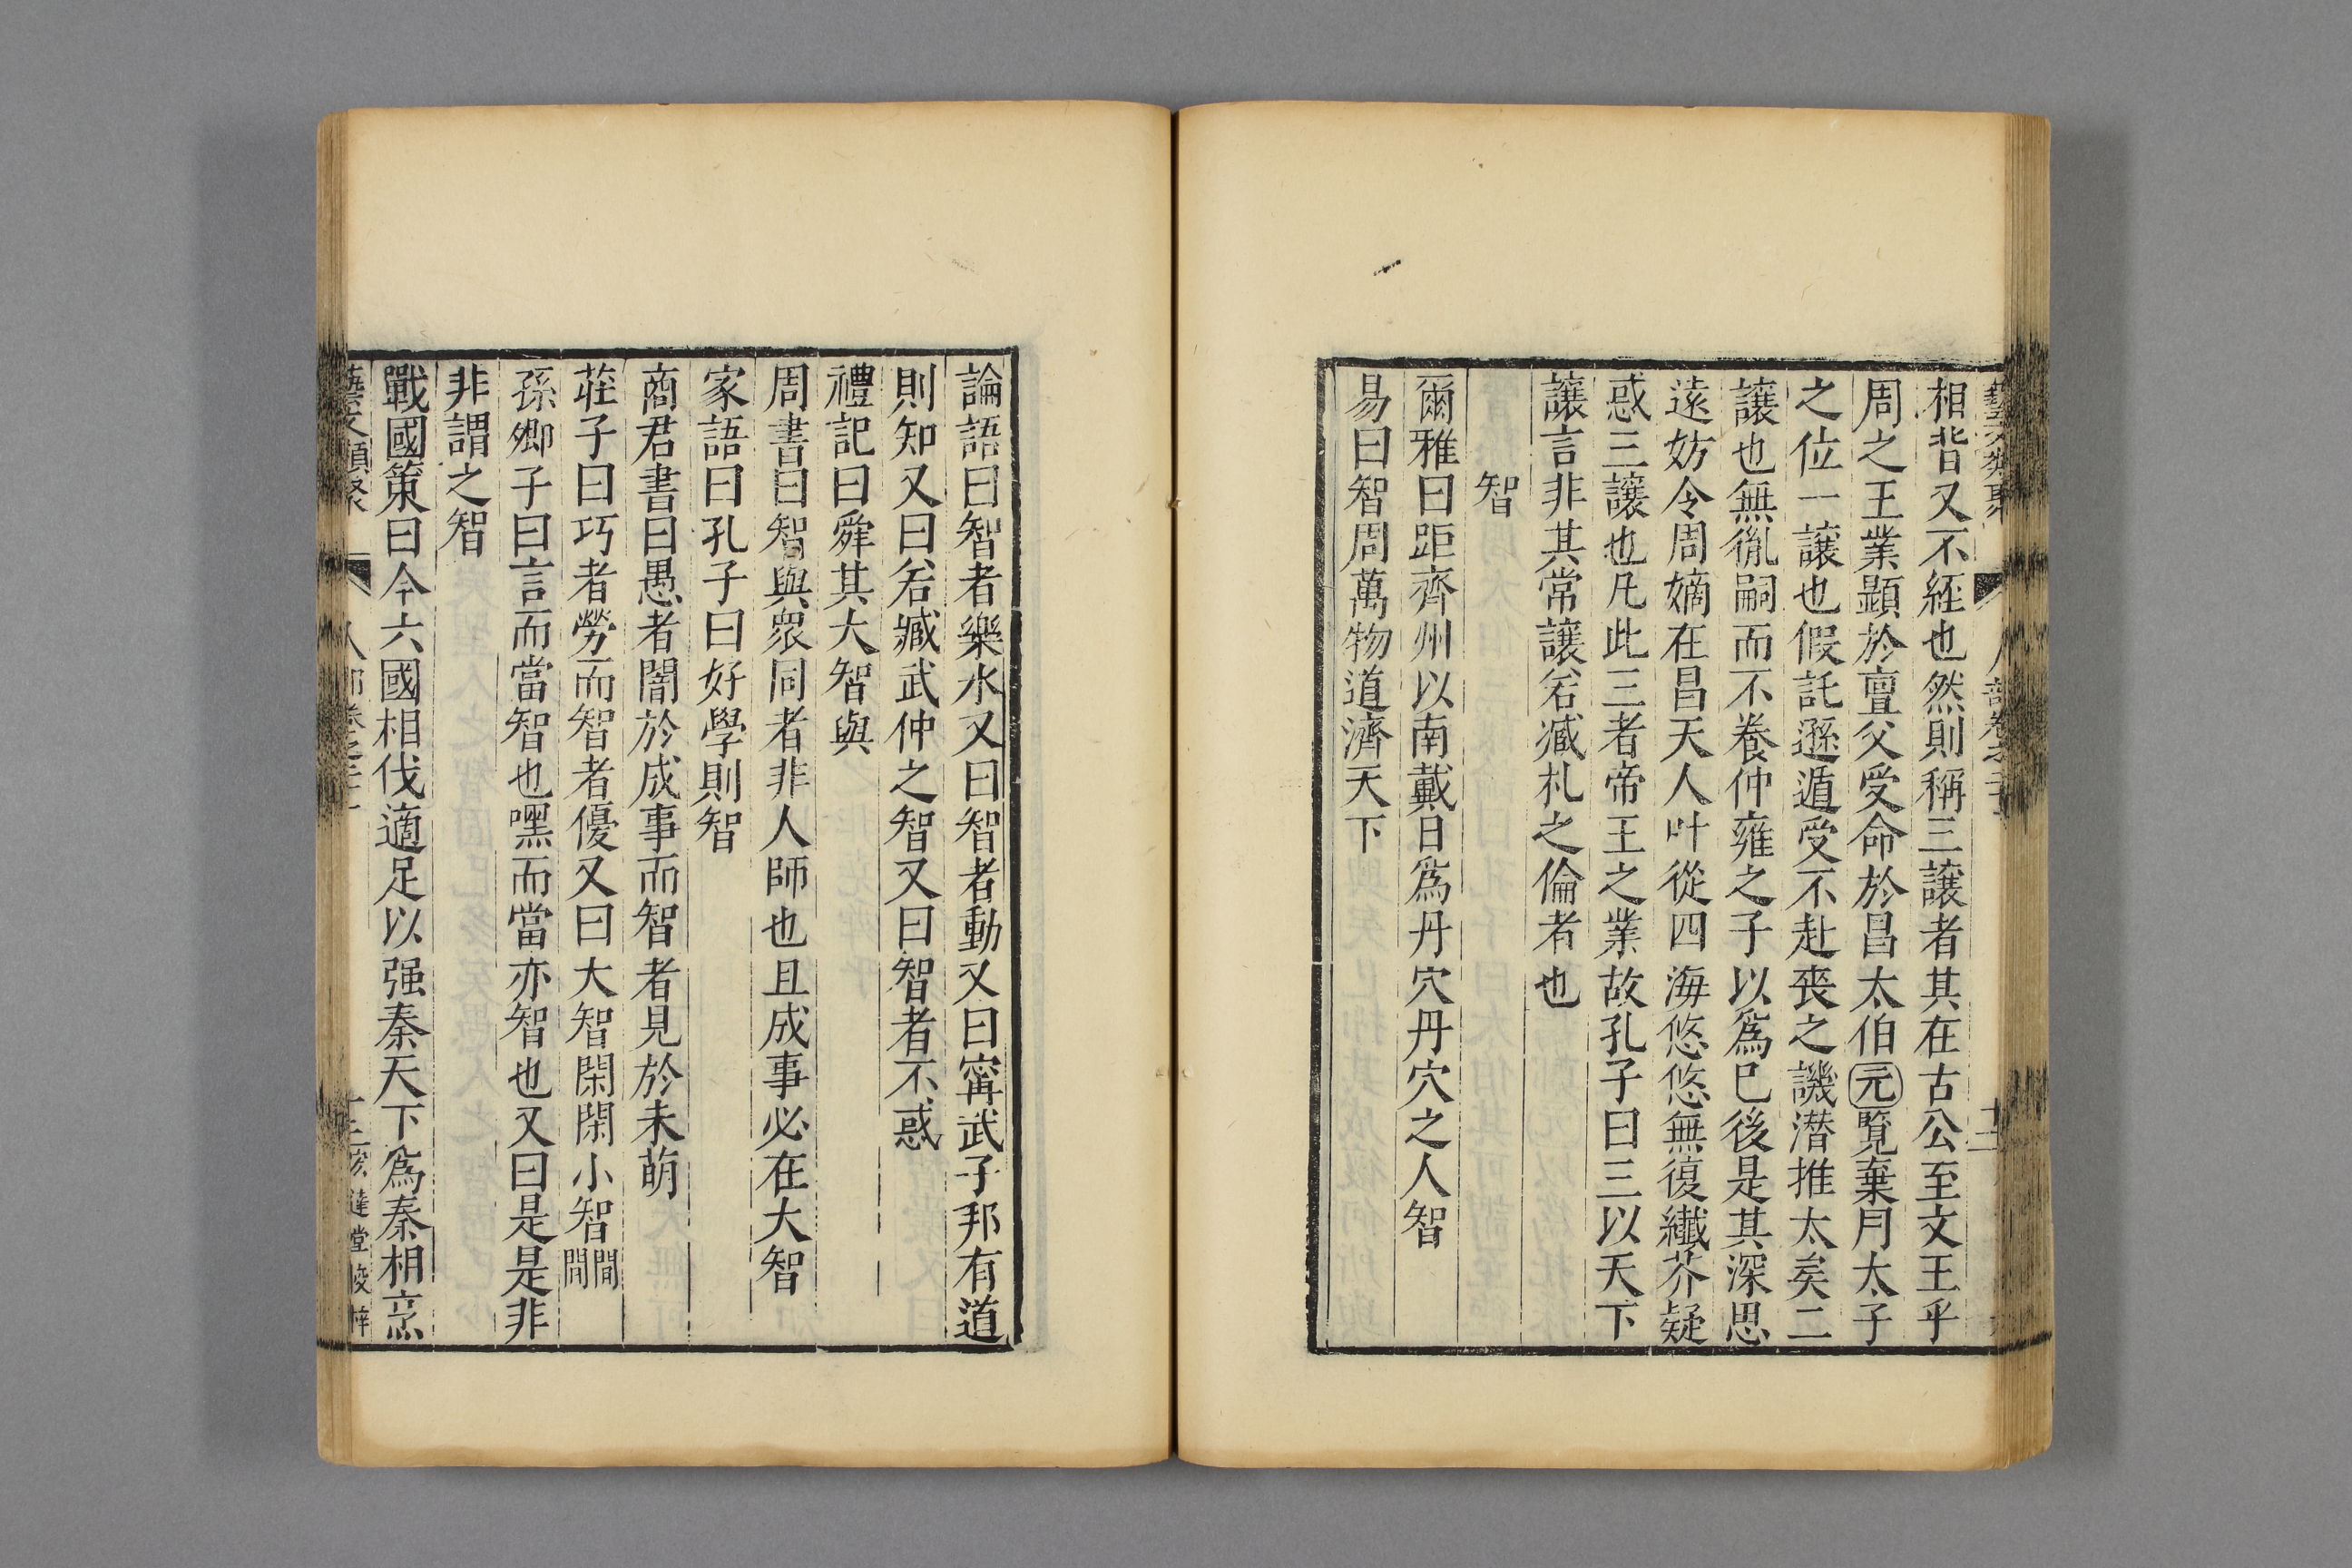 相背又不經也然則稱三讓者其在古公至文王乎
周之王業顯於亶父受命於昌太伯元覽棄周太子
之位一讓也假託遜遁受不赴喪之譏潛推太矣二
讓也無胤嗣而不養仲雍之子以為已後是其深思
遠妨令周嫡在昌天人叶從四海悠悠無復纎芥疑
惑三讓也凡此三者帝王之業故孔子曰三以天下
讓言非其常讓若臧札之倫者也
智
爾雅曰距齊州以南戴日為丹穴丹穴之人智
易曰智周萬物道濟天下
論語曰智者樂水又曰智者動又曰寗武子邦有道
則知又曰若臧武仲之智又曰智者不惑
禮記曰舜其大智與
周書曰智與衆同者非人師也且成事必在大智
家語曰孔子曰好學則智
商君書曰愚者闇於成事而智者見於未萌
莊子曰巧者勞而智者優又曰大智閑閑小智間間
孫卿子曰言而當智也嘿而當亦智也又曰是是非
非謂之智
戰國策曰今六國相伐適足以强秦天下為秦相烹